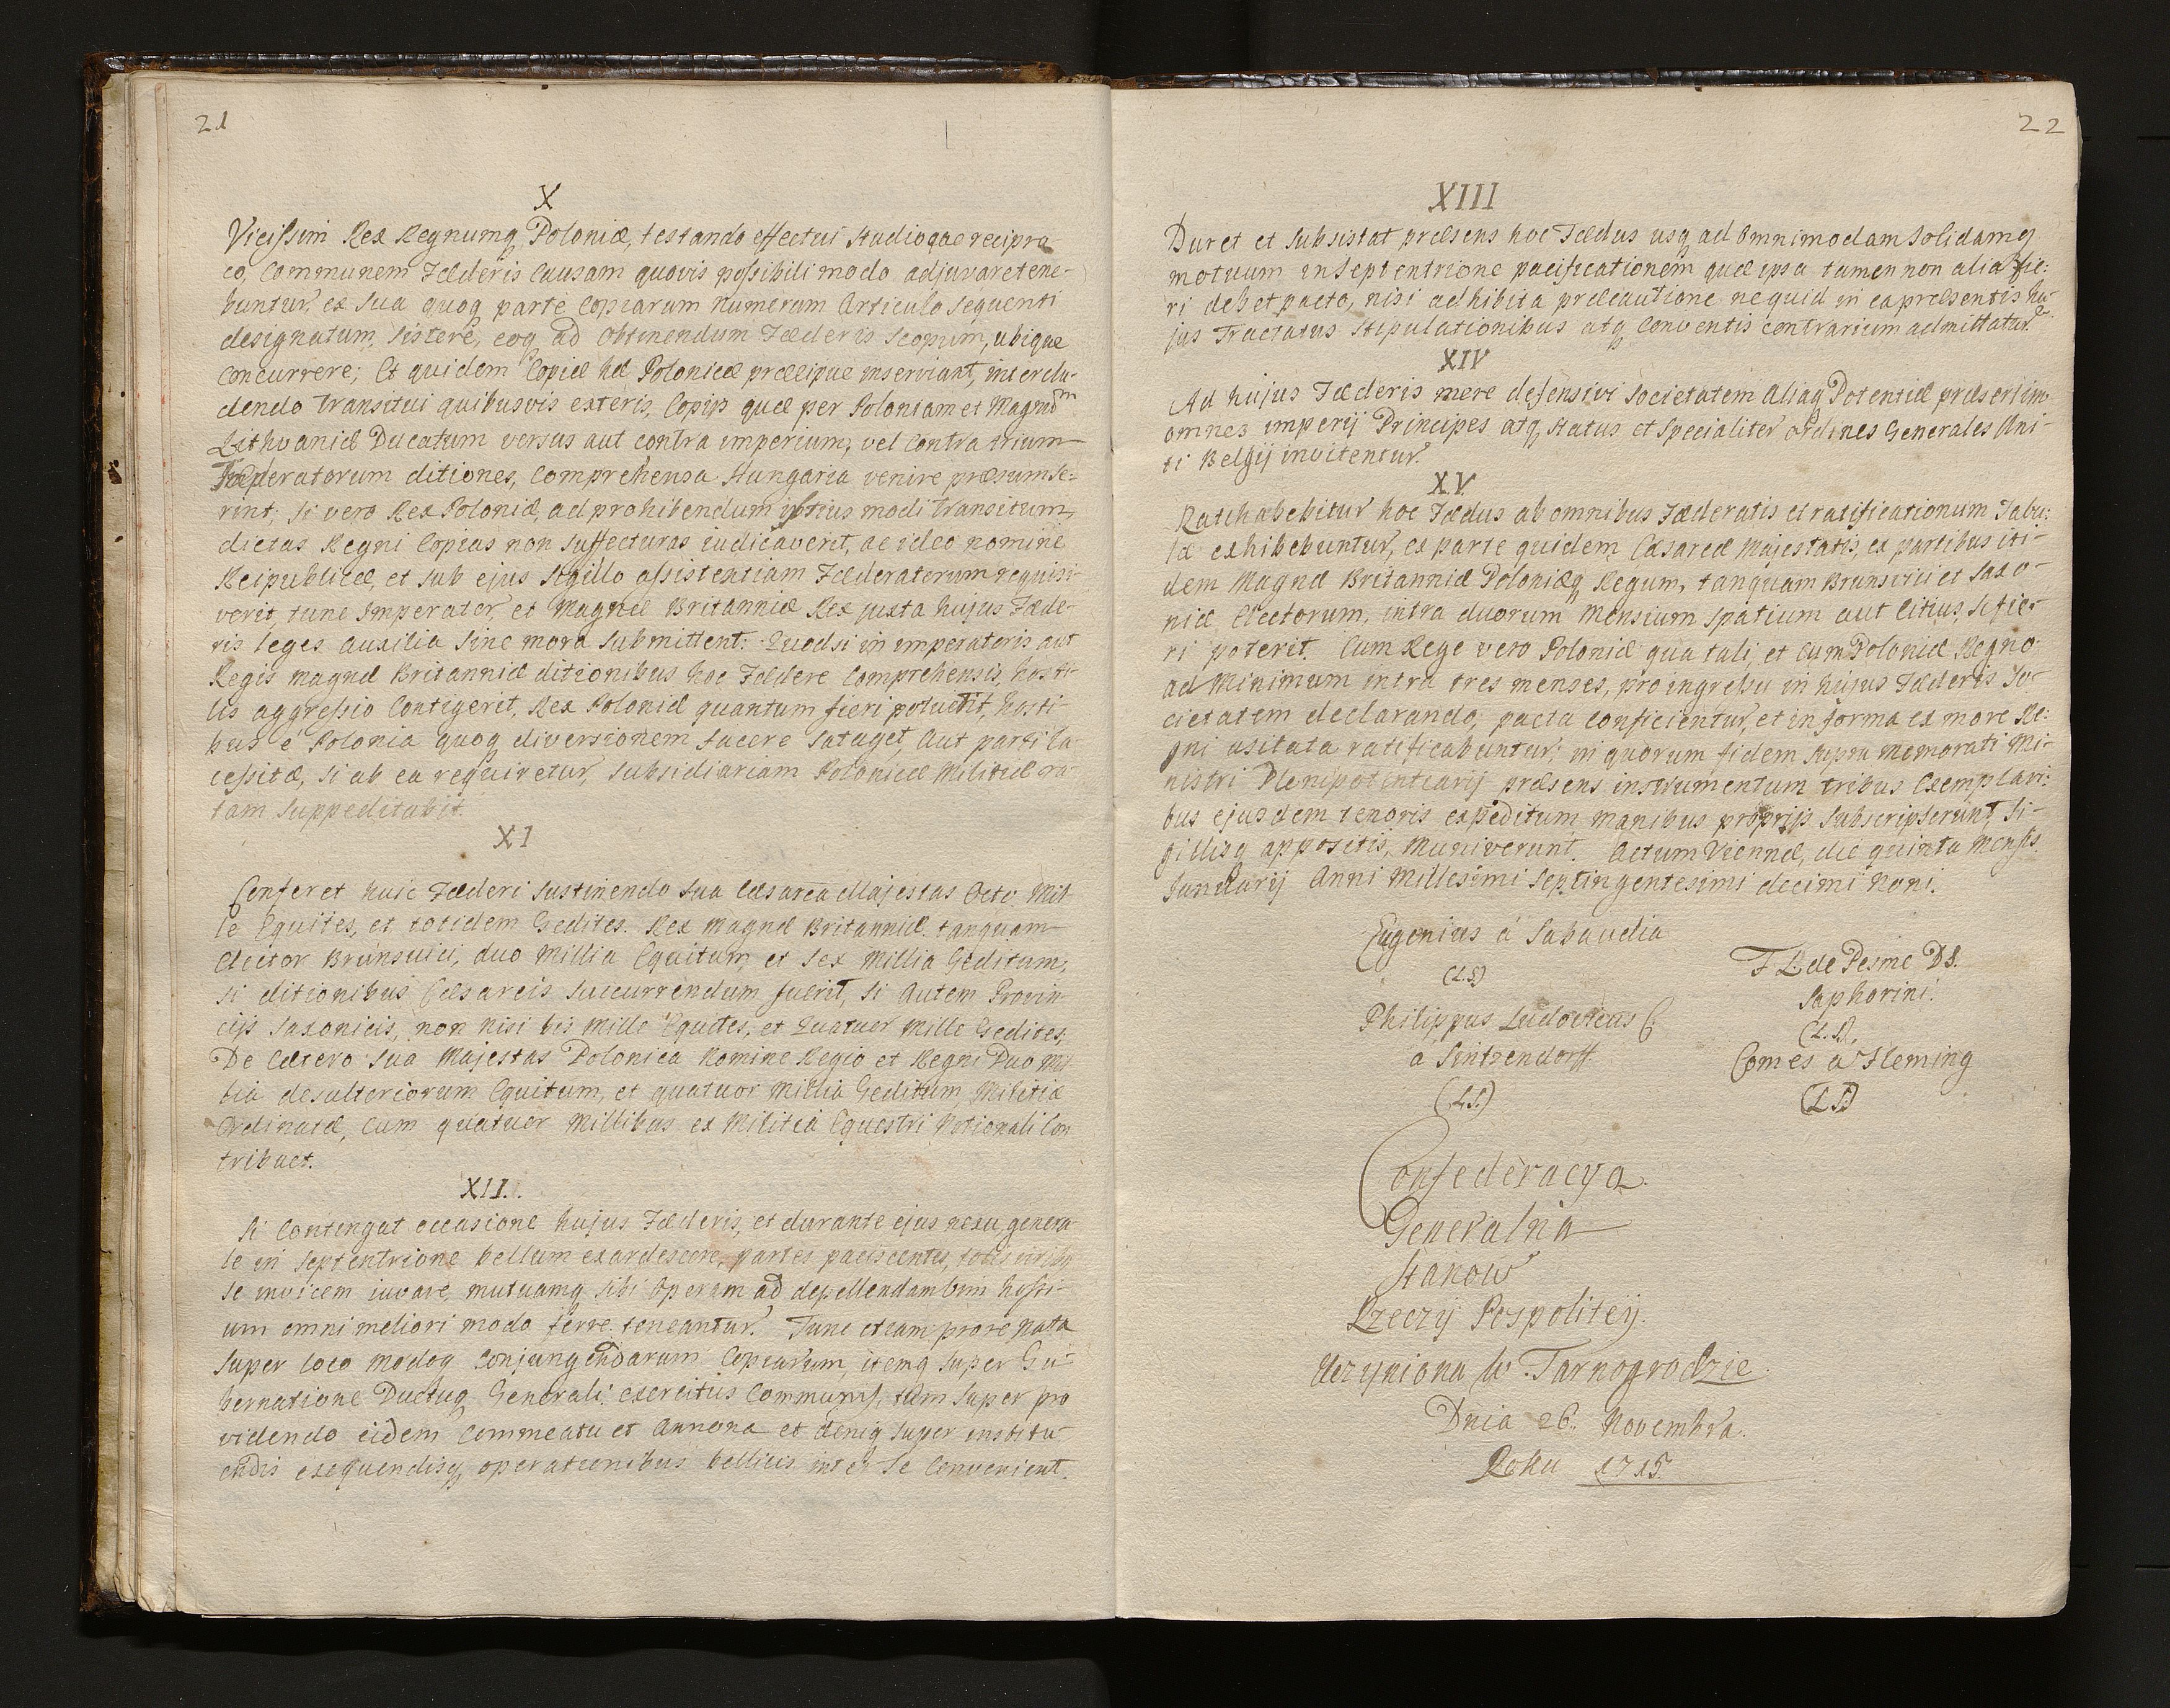 21
X
Vicissim Rex Regnumq Poloniæ, testando effectui Studioque recipro
co, Communem Fœderis Causam quovis possibili modo adjuvare tene-
buntur, ex Sua quoq parte Copiarum Numerum Articulo Sequenti
designatum, Sistere, eoq ad Obtinendum Fœderis Scopum, ubique
Concurrere; Et quidem Copiæ hæ Polonicæ præcipue inserviant, interclu-
dendo Transitui quibusvis exteris, Copijs quæ per Poloniam et Magnum
Lithvaniæ Ducatum versus aut contra imperium, vel Contra trium
Fæderatorum ditiones, Comprehensa Hungaria venire præsumse-
rint, Si vero Rex Poloniæ, ad prohibendum istius modi Transitum,
dictas Regni Copias non Suffecturas iudicaverit, ac ideo nomine
Reipublicæ, et Sub ejus Sigillo assistentiam Fæderatorum requisi-
verit, tunc Imperator, et Magnæ Britanniæ Rex juxta hujus Fæde-
ris leges Auxilia Sine mora Submittent. Quodsi in imperatoris aut
Regis magnæ Britanniæ ditionibus hoc Fœdere Comprehensis, hosti-
lis aggressio Contigerit, Rex Poloniæ quantum fieri poterit, hosti-
bus é Polonia quoq diversionem facere Sataget, Aut parti la-
cessitæ, Si ab ea requiretur, Subsidiariam Polonicæ Militiæ ra-
tam Suppeditabit.
XI
Conferet huic Fæderi Sustinendo Sua Cæsarea Majestas Octo Mil
le Equites, et totidem Peditès. Rex Magnæ Britanniæ tanquam
Elector Brunsvici, duo Millia Equitum, et Sex Millia Peditum,
Si ditionibus Cæsareis Succurrendum fuerit, Si Autem Provin-
cijs Saxonicis, non nisi bis Mille Equites, et Quatuor Mille Pedites;
De Cætero Sua Majestas Polonica Nomine Regio et Regni Duo Mil
lia desultoriorum Equitum, et quatuor Millia Peditum Militiæ
Ordinatæ, Cum quatuor Millibus ex Militia Equestri Nationali Con
tribuet.
XII.
Si Contingat occasione hujus Fæderis, et durante ejus nexu, genera
le in Septentrione bellum exardescere, partes paciscentes, totis viribq
Se invicem iuvare, mutuamq Sibi Operam ad depellendam vim hosti-
um omni meliori modo ferre teneantur. Tunc etiam pro re Nata
Super loco modoq Conjungendarum Copiarum, itemq Super Gu-
bernatione Ductuq Generali exercitus Communis, tum Super pro
videndo eidem Commeatu et Annona et deniq Super institu-
endis exequendisq operationibus bellicis inter Se Convenient.
22
XIII
Duret et Subsistat præsens hoc Fædus usq ad Omnimodam Solidamq
motuum in Septentrione pacificationem quæ ipsa tamen non alia fie-
ri debet pacto, nisi adhibita præcautione ne quid in ea præsentis hu-
jus Tractatus Stipulationibus atq Conventis contrarium admittatur.
XIV
Ad hujus Fæderis mere defensivi Societatem Aliaq Potentiæ præsertim
omnes imperij Principes atq Status et Specialiter Ordines Generales Uni-
ti Belgij invitentur.
XV.
Ratihabebitur hoc Fædus ab omnibus Fæderatis et ratificationum Tabu-
læ exhibebuntur, ex parte quidem Cæsareæ Majestatis, ex partibus iti-
dem Magnæ Britanniæ Poloniæq Regum, tanquam Brunsvici et Saxo-
niæ Electorum, intra duorum Mensium Spatium aut Citius, Si fie-
ri poterit. Cum Rege vero Poloniæ qua tali, et Cum Poloniæ Regno
ad Minimum intra tres menses, pro ingressu in hujus Fæderis So-
cietatem declarando, pacta Conficientur, et in forma ex more Re-
gni usitata ratificabuntur; in quorum fidem Supra memorati Mi-
nistri Plenipotentiarij præsens instrumentum tribus Exemplari-
bus ejusdem tenoris expeditum manibus proprijs Subscripserunt, Si-
gillisq appositis, Muniverunt. Actum Viennæ, die quinta Mensis
Januarij Anni Millesimi Septingentesimi decimi Noni.
Eugenius á Sabaudia
(L.S.)
Philippus Ludovicus C:
a Sintzendorff
(L.S.)
F L: de Pesme DS.
Saphorini.
(L.S.)
Comes a Fleming
(L S.)
Confederacya
Generalna
Stanow
Rzeczy Pospolitey
Uczyniona w Tarnogrodzie.
Dnia 26: Novembra.
Roku 1715